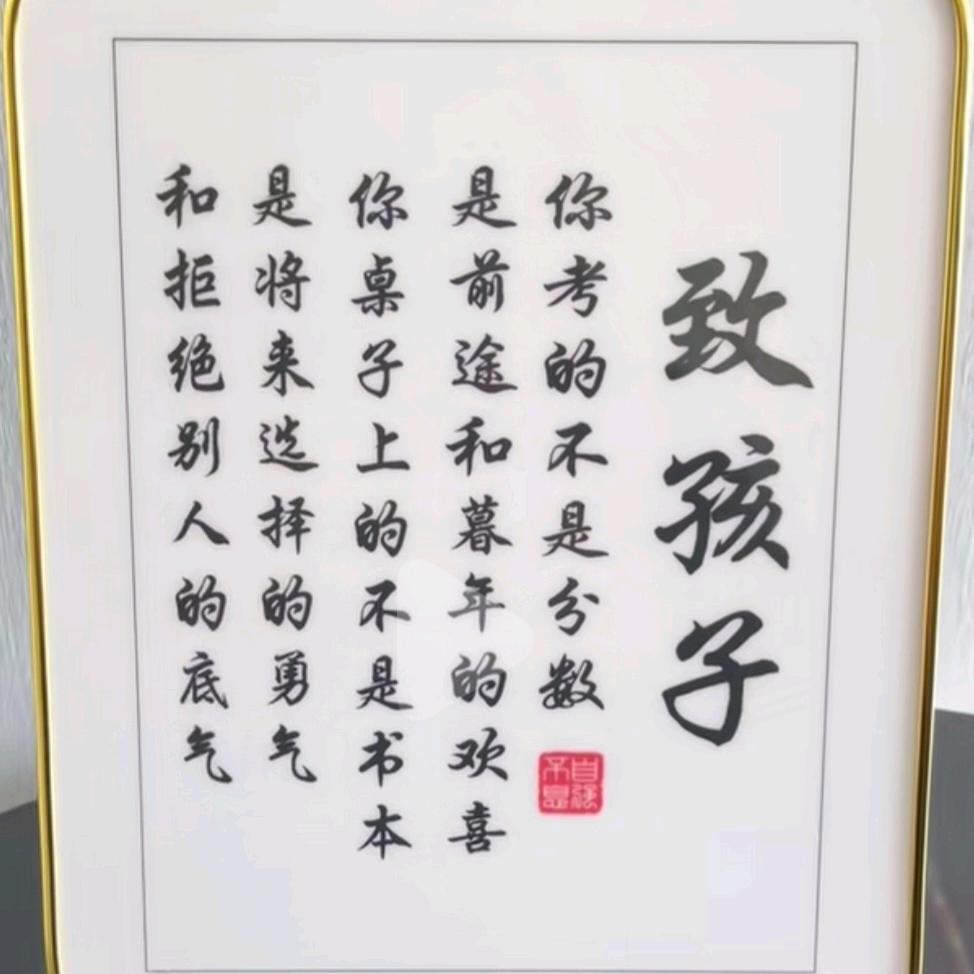 致孩子
你考的不是分数
是前途和暮年的欢喜
你桌子上的不是书本
是将来选择的勇气
和拒绝别人的底气
自强不息